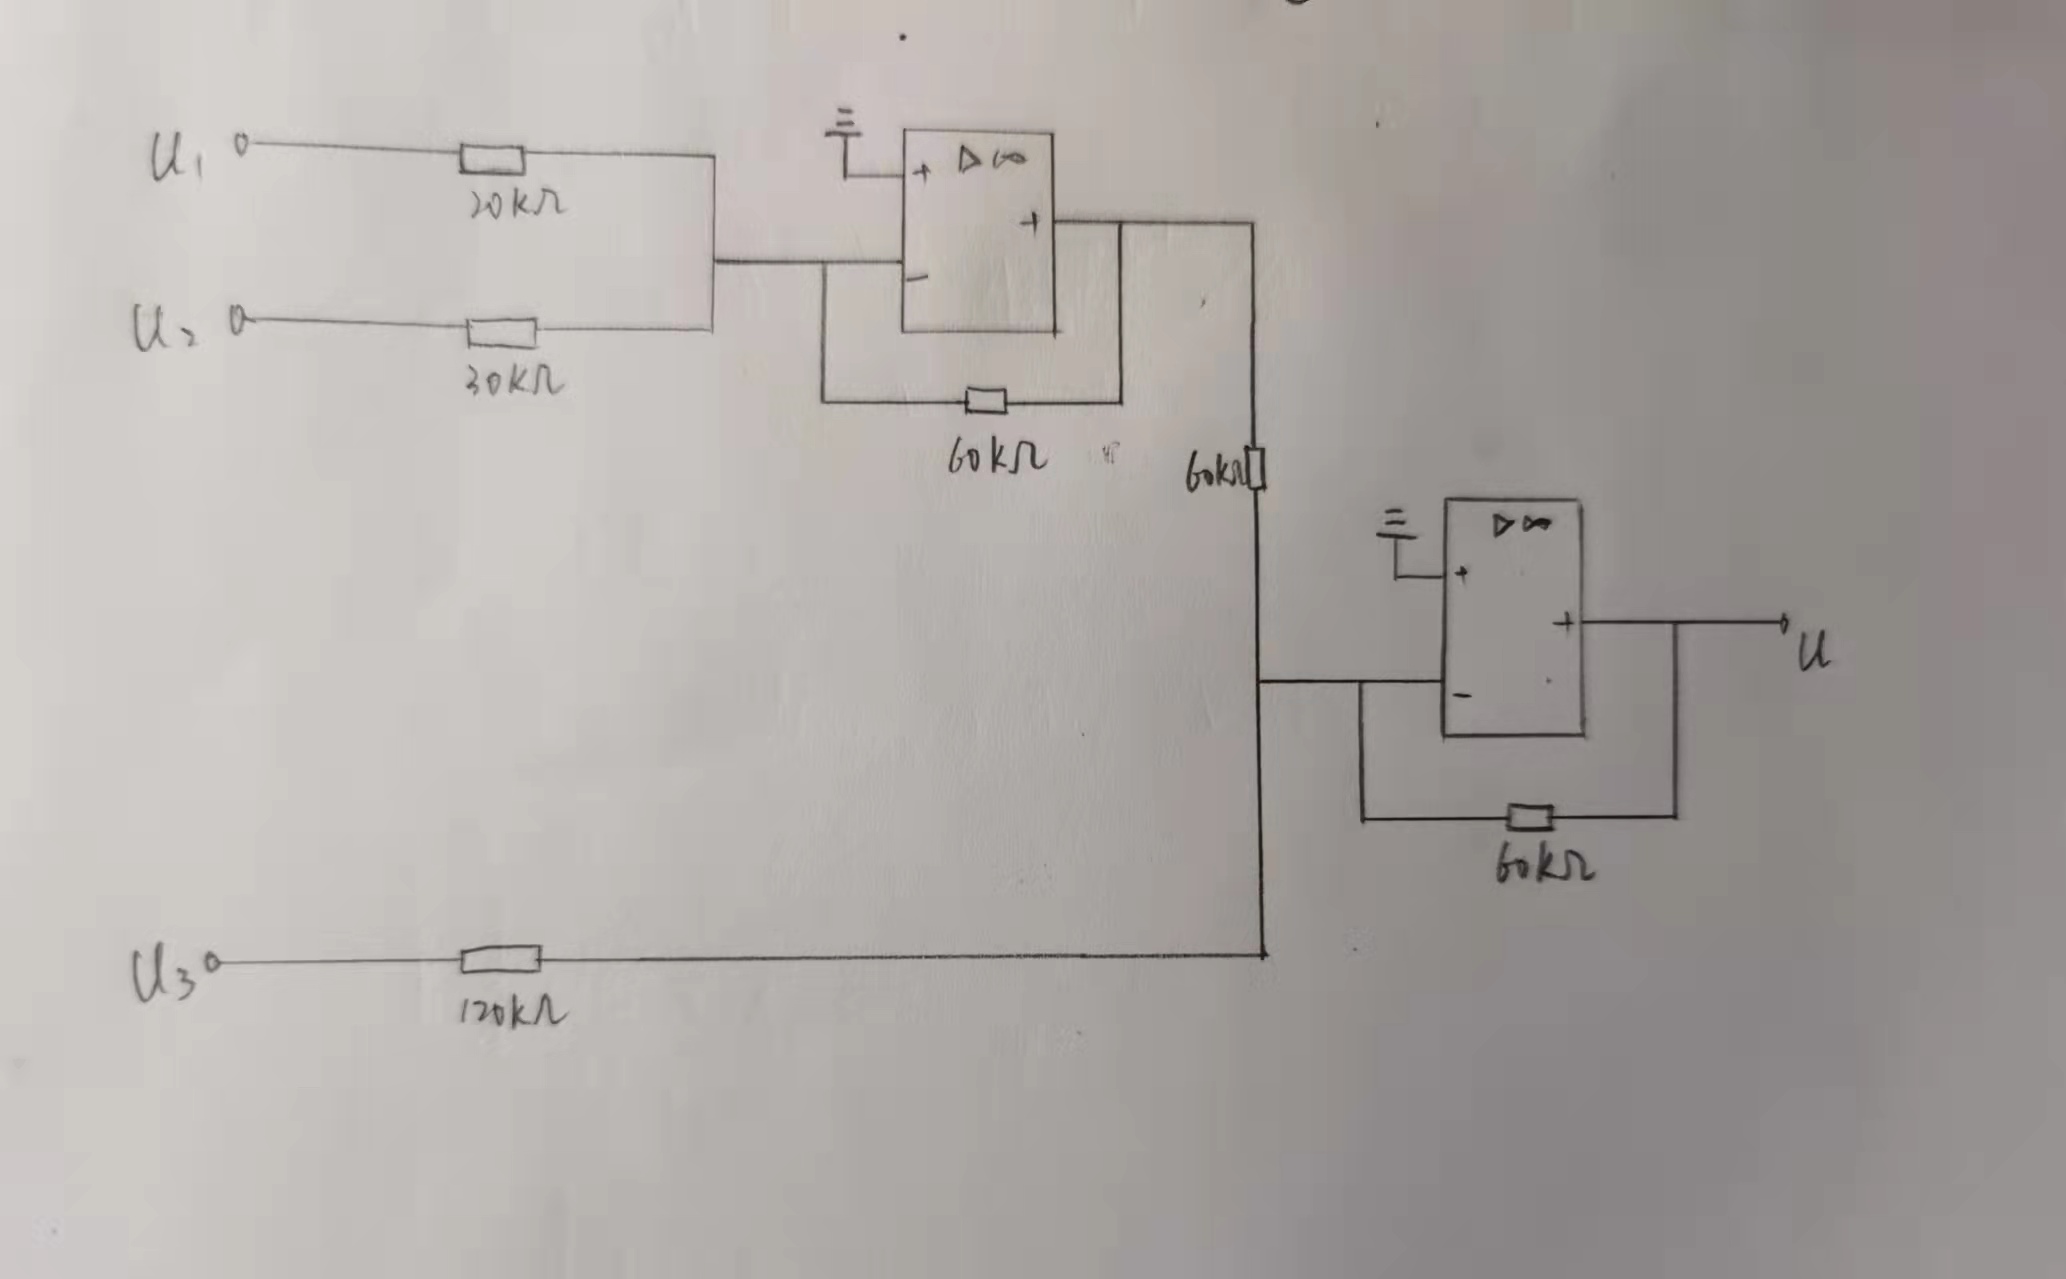 U₁
20kΩ
▷∞
+
+
−
U₂
30kΩ
60kΩ
60kΩ
▷∞
+
+
−
U
60kΩ
U₃
120kΩ